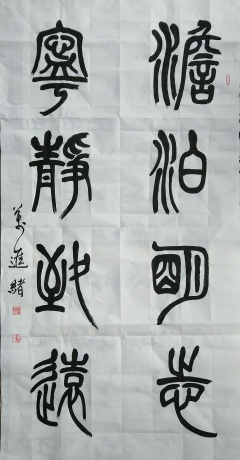 澹泊明志
寧靜致遠
萬進緒